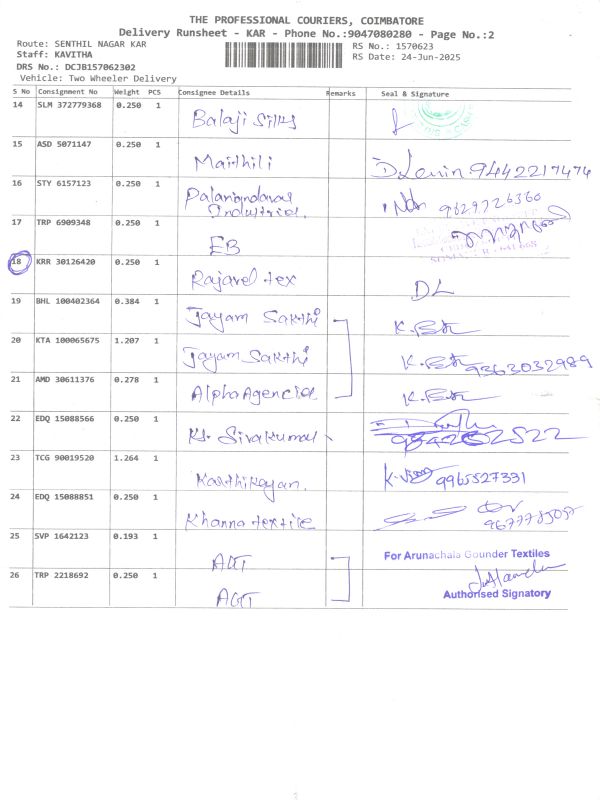 THE PROFESSIONAL COURIERS, COIMBATORE
Delivery Runsheet - KAR - Phone No.:9047080280 - Page No.:2
Route: SENTHIL NAGAR KAR RS No.: 1570623
Staff: KAVITHA RS Date: 24-Jun-2025
DRS No.: DCJB157062302
Vehicle: Two Wheeler Delivery
S No Consignment No Weight PCS Consignee Details Remarks Seal & Signature
14 SLM 372779368 0.250 1 Balaji Silks
15 ASD 5071147 0.250 1 Maithili 9442217474
16 STY 6157123 0.250 1 9629726360
17 TRP 6909348 0.250 1 EB
18 KRR 30126420 0.250 1 Rajavel tex DL
19 BHL 100402364 0.384 1 Jayam Sakthi
20 KTA 100065675 1.207 1 Jayam Sakthi 9363032989
21 AMD 30611376 0.278 1 Alpha Agencies
22 EDQ 15088566 0.250 1 Sivakumar
23 TCG 90019520 1.264 1 Karthikeyan. 9965527331
24 EDQ 15088851 0.250 1 Khanna textile
25 SVP 1642123 0.193 1 AGT For Arunachala Gounder Textiles
26 TRP 2218692 0.250 1 AGT Authorised Signatory